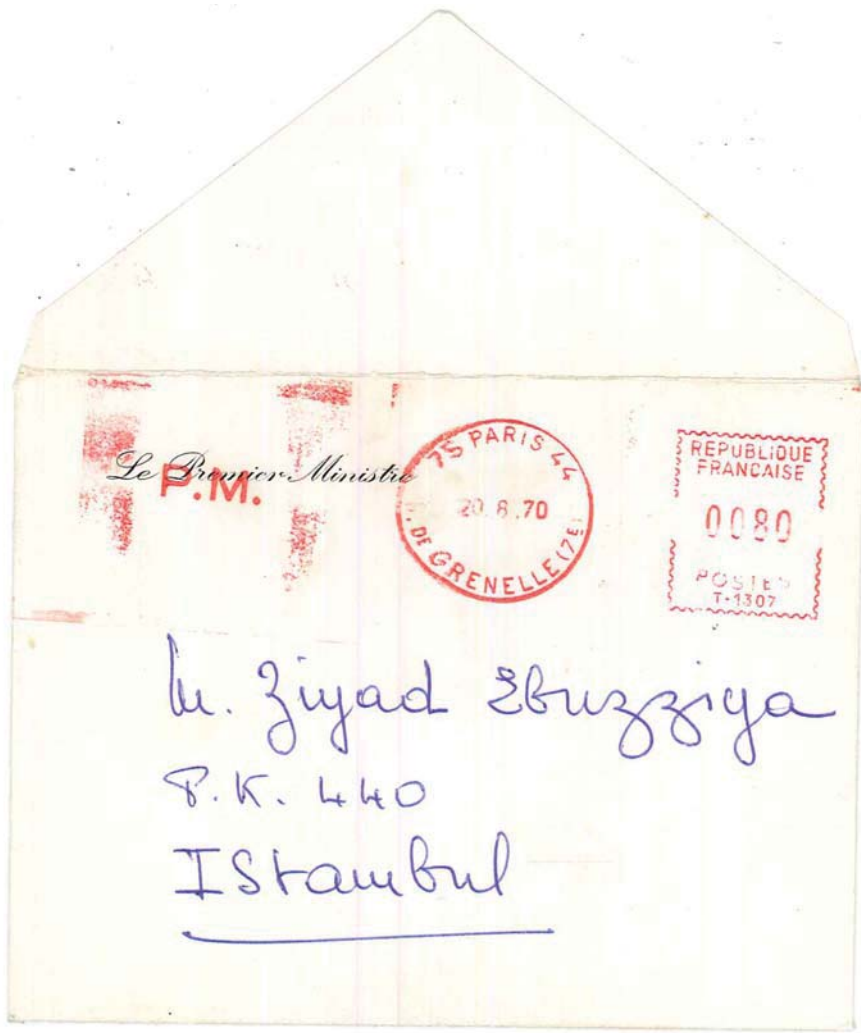 Le Premier Ministre
P.M.
75 PARIS 44
20.8.70
. DE GRENELLE (7E)
REPUBLIQUE
FRANCAISE
0080
POSTES
T-1307
M. Ziyad Ebuzziya
P.K. 440
IStambul